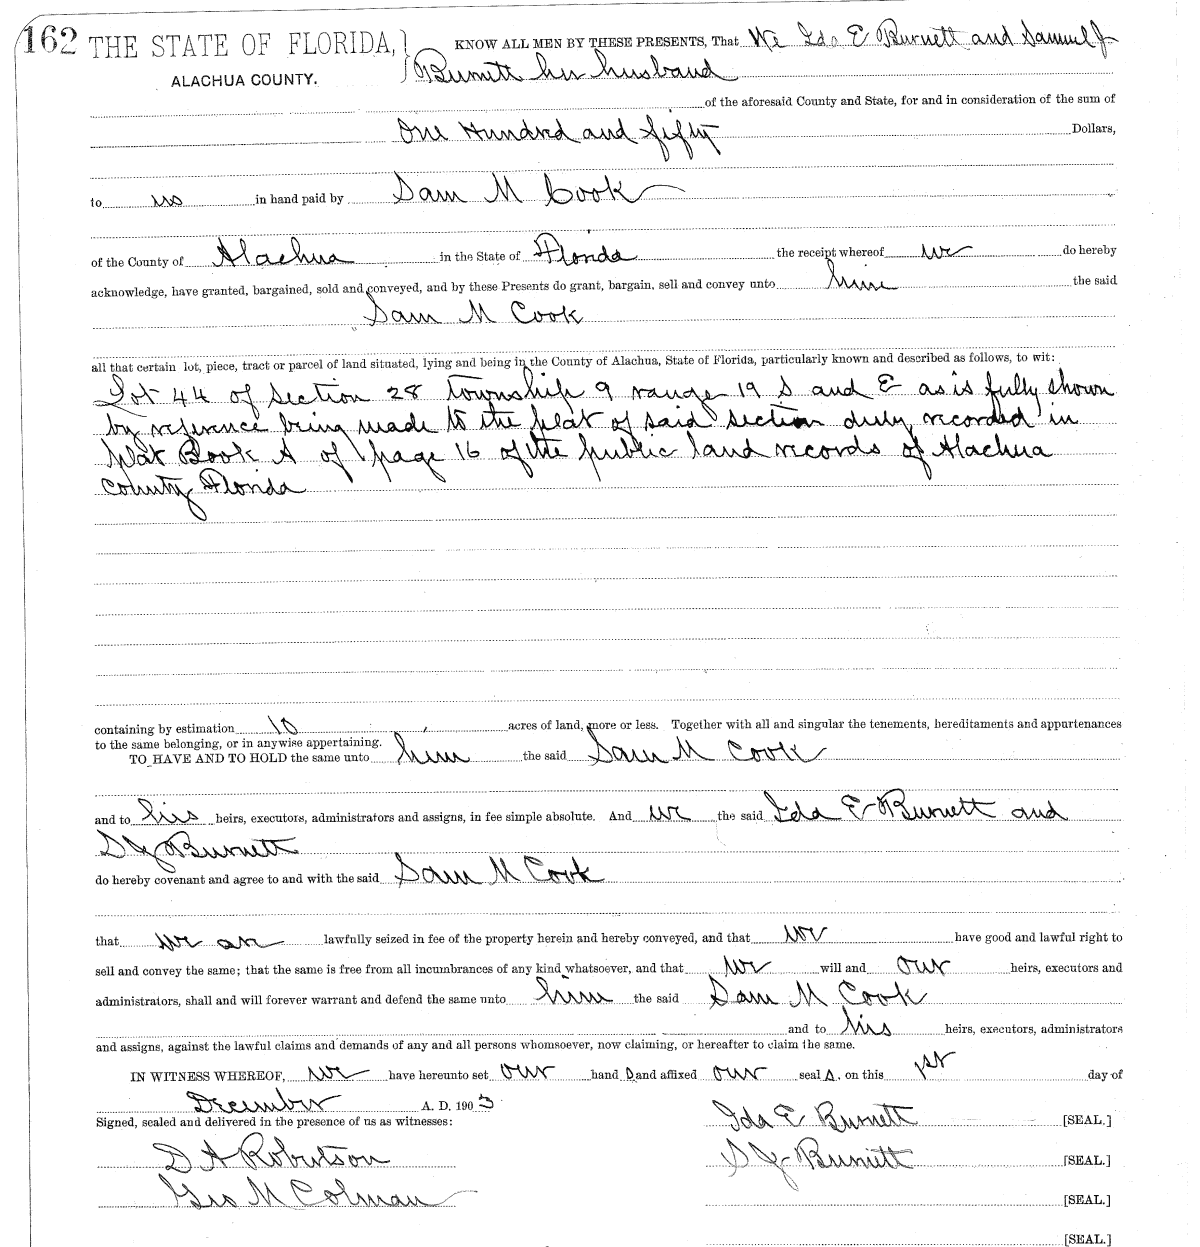 162 THE STATE OF FLORIDA, } KNOW ALL MEN BY THESE PRESENTS, That We Ida E Burnett and Samuel J
ALACHUA COUNTY. Burnett her husband
of the aforesaid County and State, for and in consideration of the sum of
One Hundred and fifty Dollars,
to us in hand paid by Sam M Cook
of the County of Alachua in the State of Florida the receipt whereof we do hereby
acknowledge, have granted, bargained, sold and conveyed, and by these Presents do grant, bargain, sell and convey unto him the said
Sam M Cook
all that certain lot, piece, tract or parcel of land situated, lying and being in the County of Alachua, State of Florida, particularly known and described as follows, to wit:
Lot 44 of Section 28 township 9 range 19 S and E as is fully shown
by reference being made to the plat of said section duly recorded in
Plat Book A of page 16 of the public land records of Alachua
County Florida
containing by estimation 10 acres of land, more or less. Together with all and singular the tenements, hereditaments and appurtenances
to the same belonging, or in anywise appertaining.
TO HAVE AND TO HOLD the same unto him the said Sam M Cook
and to his heirs, executors, administrators and assigns, in fee simple absolute. And we the said Ida E Burnett and
S J Burnett
do hereby covenant and agree to and with the said Sam M Cook
that we are lawfully seized in fee of the property herein and hereby conveyed, and that we have good and lawful right to
sell and convey the same; that the same is free from all incumbrances of any kind whatsoever, and that we will and our heirs, executors and
administrators, shall and will forever warrant and defend the same unto him the said Sam M Cook
and to his heirs, executors, administrators
and assigns, against the lawful claims and demands of any and all persons whomsoever, now claiming, or hereafter to claim the same.
IN WITNESS WHEREOF, we have hereunto set our hand s and affixed our seal s. on this 1st day of
December A. D. 1903
Signed, sealed and delivered in the presence of us as witnesses: Ida E Burnett [SEAL.]
D A Robertson S J Burnett [SEAL.]
Geo M Colman [SEAL.]
[SEAL.]